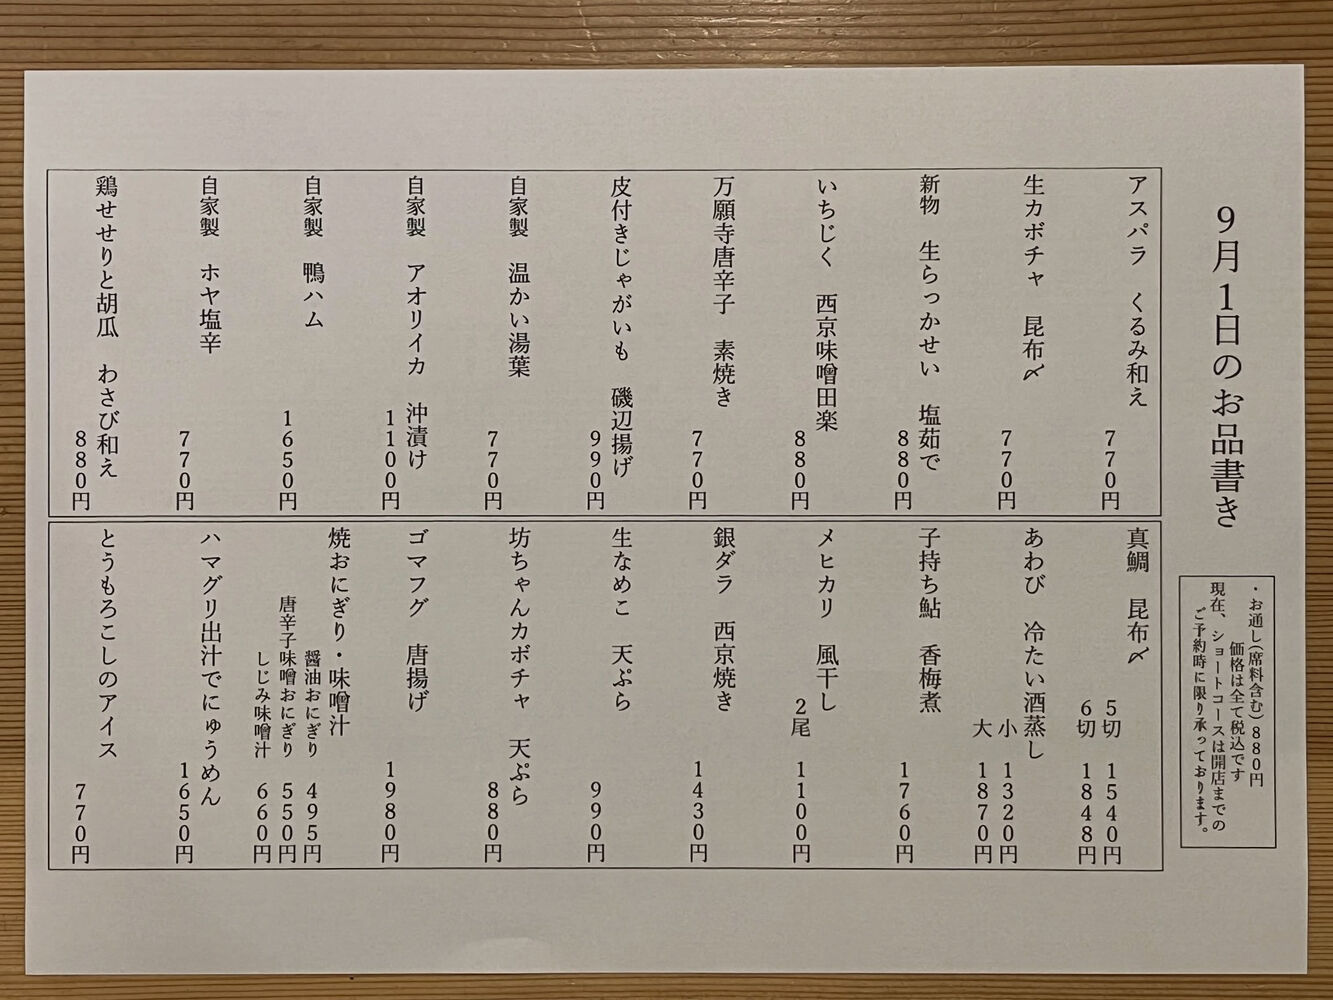 9月1日のお品書き
・お通し(席料含む)880円
価格は全て税込です
現在、ショートコースは開店までの
ご予約時に限り承っております。
アスパラ　くるみ和え
770円
生カボチャ　昆布〆
770円
新物　生らっかせい　塩茹で
880円
いちじく　西京味噌田楽
880円
万願寺唐辛子　素焼き
770円
皮付きじゃがいも　磯辺揚げ
990円
自家製　温かい湯葉
770円
自家製　アオリイカ　沖漬け
1100円
自家製　鴨ハム
1650円
自家製　ホヤ塩辛
770円
鶏せせりと胡瓜　わさび和え
880円
真鯛　昆布〆
5切　1540円
6切　1848円
あわび　冷たい酒蒸し
小　1320円
大　1870円
子持ち鮎　香梅煮
1760円
メヒカリ　風干し
2尾　1100円
銀ダラ　西京焼き
1430円
生なめこ　天ぷら
990円
坊ちゃんカボチャ　天ぷら
880円
ゴマフグ　唐揚げ
1980円
焼おにぎり・味噌汁
醤油おにぎり　495円
唐辛子味噌おにぎり　550円
しじみ味噌汁　660円
ハマグリ出汁でにゅうめん
1650円
とうもろこしのアイス
770円